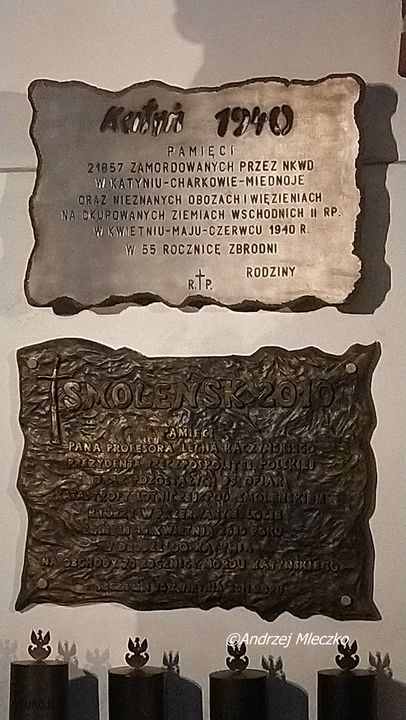 Katyń 1940
PAMIĘCI
21857 ZAMORDOWANYCH PRZEZ NKWD
W KATYNIU-CHARKOWIE-MIEDNOJE
ORAZ NIEZNANYCH OBOZACH I WIĘZIENIACH
NA OKUPOWANYCH ZIEMIACH WSCHODNICH II RP.
W KWIETNIU-MAJU-CZERWCU 1940 R.
W 55 ROCZNICĘ ZBRODNI
RODZINY
R.†P.
SMOLEŃSK 2010
PAMIĘCI
PANA PROFESORA LECHA KACZYŃSKIEGO
PREZYDENTA RZECZYPOSPOLITEJ POLSKIEJ
ORAZ POZOSTAŁYCH 95 OFIAR
KATASTROFY LOTNICZEJ POD SMOLEŃSKIEM
KTÓRZY W PRZERWANYM LOCIE
10 KWIETNIA 2010 ROKU
W DRODZE DO KATYNIA
NA OBCHODY 70 ROCZNICY MORDU KATYŃSKIEGO
KWIETNIA 2011
©Andrzej Mleczko